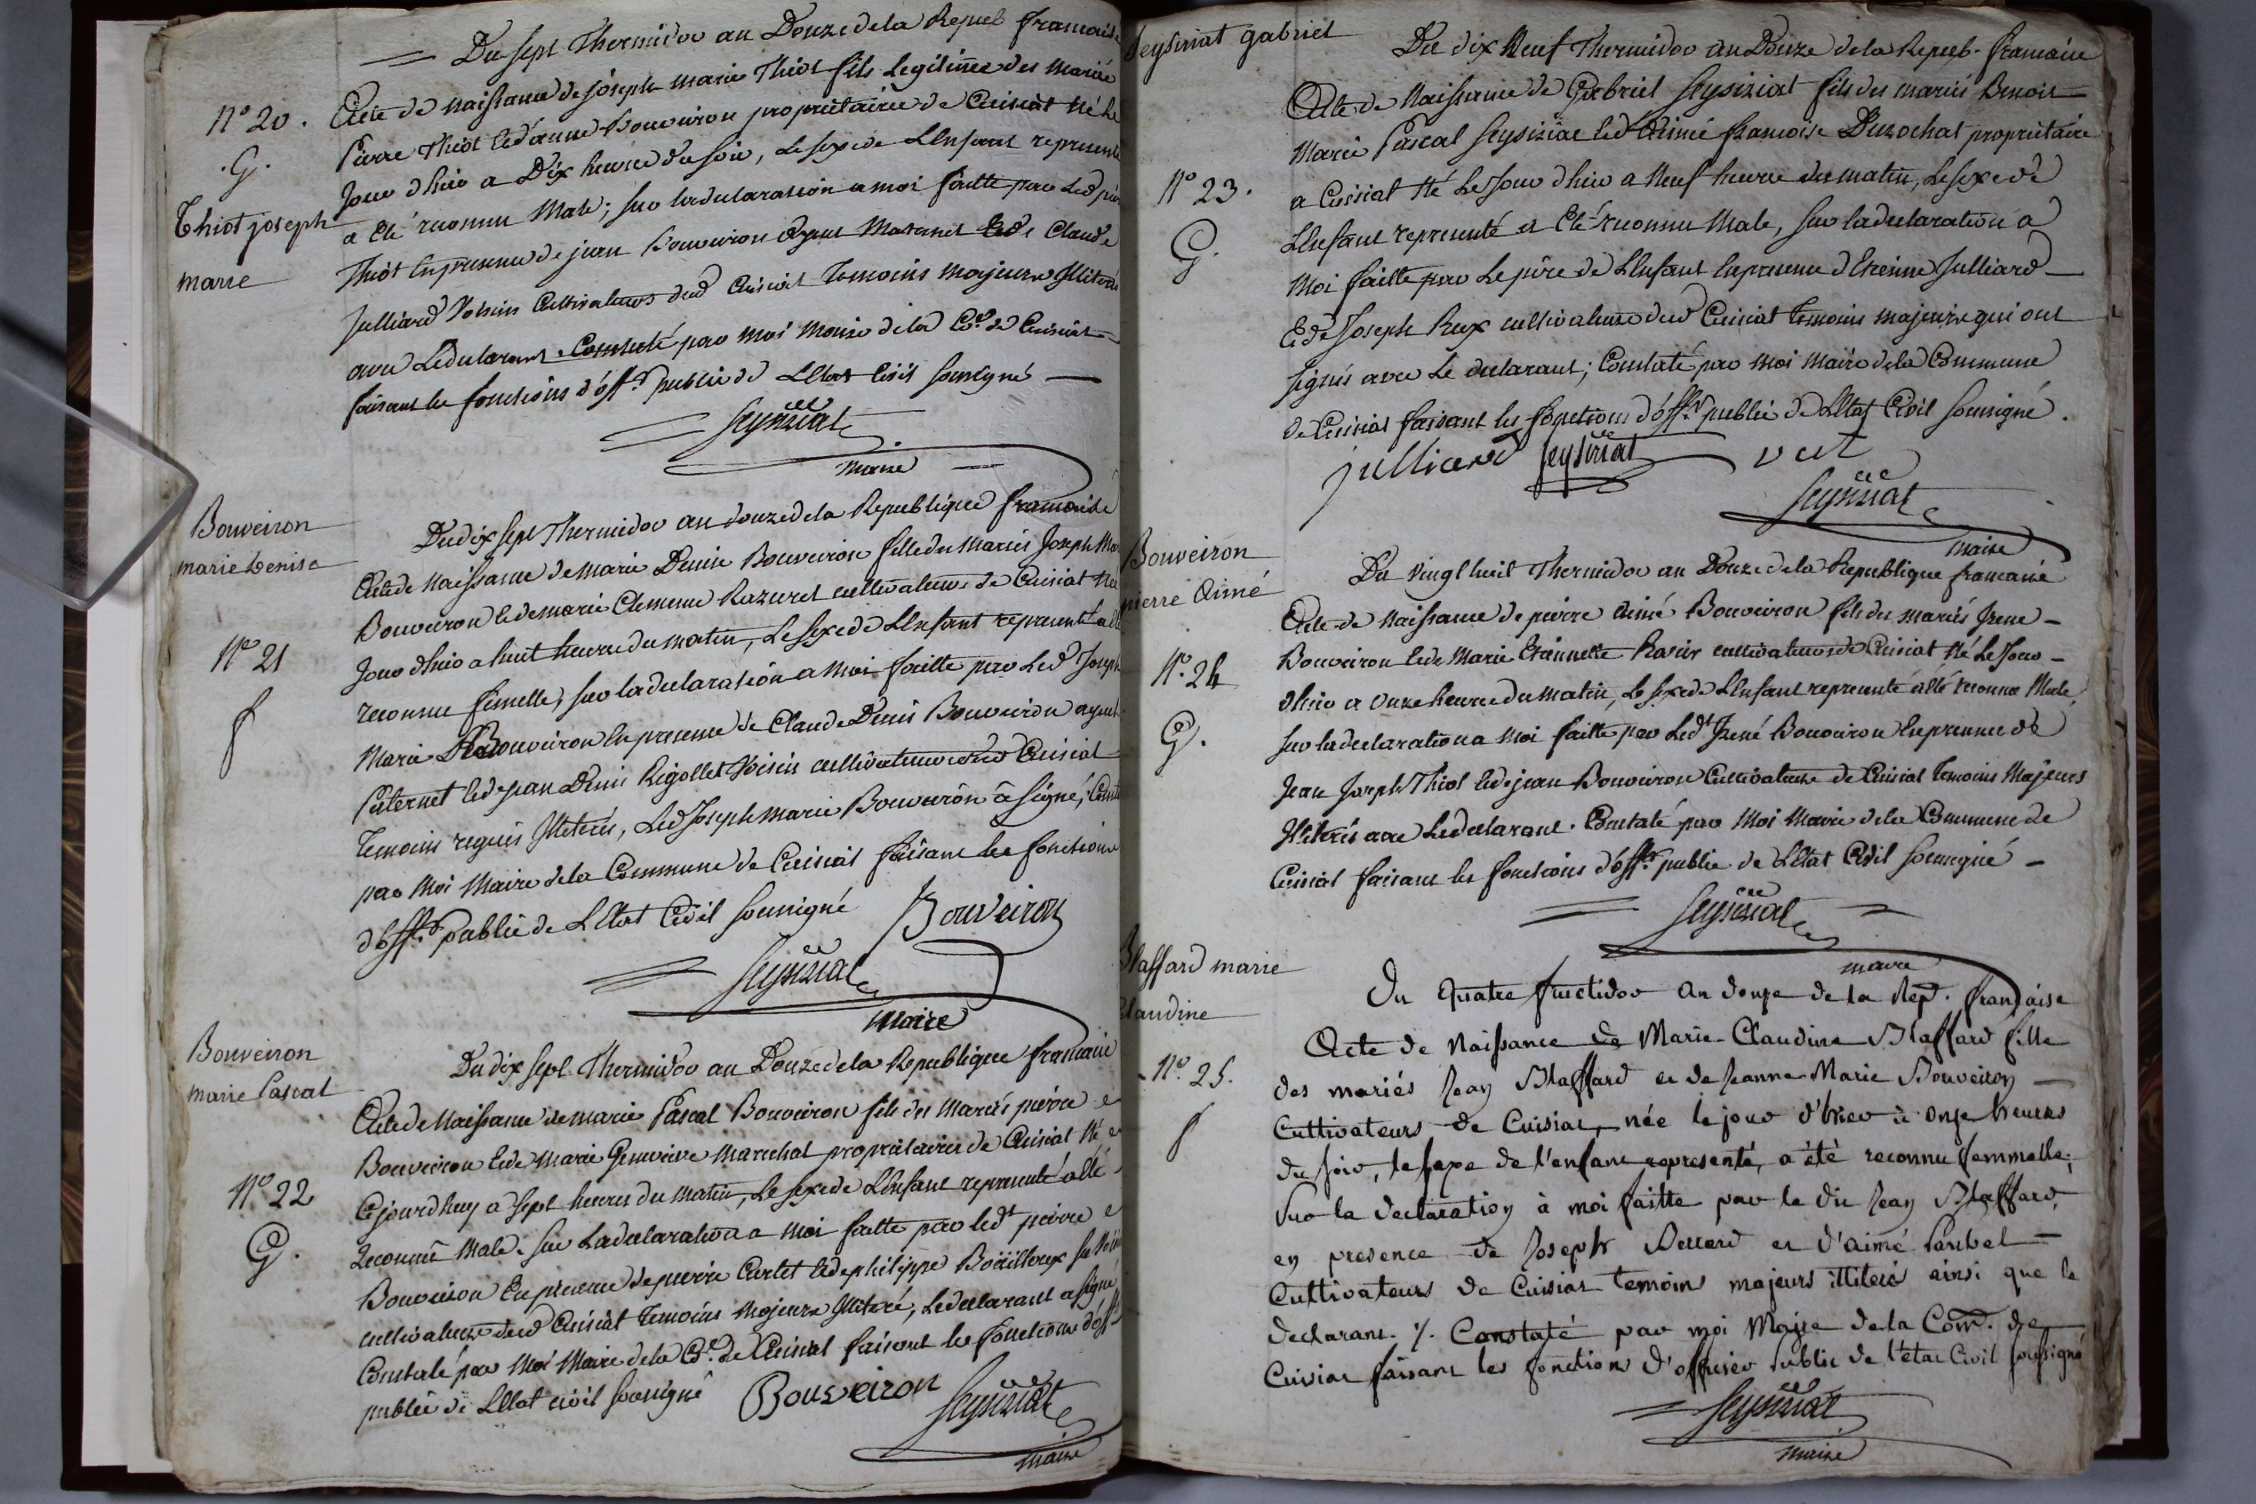 Du sept Thermidor an Douze de la Repub francaise
N° 20.
G.
Thiot joseph
marie
Acte de naissance de joseph marie Thiot fils Legitime des mariés
Pierre Thiot et d'anne Bouveiron propriétaires de Cuisiat né Le
Jour d'hier a Dix heures du soir, Le sexe de L'Enfant representé
a Eté reconnu Male; sur la declaration a moi faitte par Led pierre
Thiot En presence de jean Bouveiron ayeul Maternel Et de Claude
Julliard Voisin Cultivateurs dud Cuisiat Temoins majeurs Illiterés
avec Le declarant. Constaté par moi Maire de la Cne de Cuisiat
faisant les fonctions d'offer public de L'Etat Civil soussigné
Seysiriat
maire
Bouveiron
marie Denise
N° 21
f
Du dix sept Thermidor an douze de la Republique francaise
Acte de Naissance de marie Denise Bouveiron fille des Mariés Joseph Mar
Bouveiron et de marie Clemence Razuret cultivateurs de Cuisiat Née
Jour d'hier a huit heures du matin, Le sexe de L'Enfant representé a été
reconnu femelle, sur la declaration a moi faitte par Led Joseph
Marie Bouveiron En presence de Claude Denis Bouveiron ayeul
Paternel et de jean Denis Rigollet Voisin cultivateurs dud Cuisiat
Temoins requis Illiterés, Led Joseph Marie Bouveiron a signé, Const
par Moi Maire de la Commune de Cuisiat faisant les fonctions
d'offer public de L'Etat Civil soussigné
Bouveiron
Seysiriat
maire
Bouveiron
marie Pascal
N° 22
G.
Du dix sept Thermidor an Douze de la Republique francaise
Acte de Naissance de marie Pascal Bouveiron fils des Mariés pierre
Bouveiron et de Marie Genevieve Marechal proprietaires de Cuisiat Né
Cejourd'huy a sept heures du matin, Le sexe de L'Enfant representé a Eté
Reconnu Male. sur La declaration a moi faitte par ledt pierre
Bouveiron En presence de pierre Curtet et de philippe Bouilloux
cultivateurs dud Cuisiat Temoins Majeurs Illiteré, Le declarant a signé
Constaté par Moi Maire de la Cne de Cuisiat faisant les fonctions d'offer
public de L'Etat civil soussigné
Bouveiron
Seysiriat
maire
Seysiriat gabriel
N° 23.
G.
Du dix Neuf Thermidor an Douze de la Repub. francaise
Acte de Naissance de Gabriel Seysiriat fils des mariés Benoit
Marie Pascal Seysiriat et d'Aimé francoise Durochat propriétaire
a Cuisiat Né Le Jour d'hier a Neuf heures du matin, Le sexe de
L'Enfant representé a Eté reconnu Male, sur la declaration a
Moi faitte par Le père de L'Enfant En presence d'Etienne Julliard
Et de Joseph Rux cultivateurs dud Cuisiat temoins majeurs qui ont
signés avec Le declarant; Constaté par Moi Maire de la Commune
de Cuisiat faisant les fonctions d'offer public de L'Etat Civil soussigné.
julliard Seysiriat
Seysiriat
maire
Bouveiron
pierre Aimé
N°. 24
G.
Du Vingt huit Thermidor an Douze de la Republique francaise
Acte de Naissance de pierre aimé Bouveiron fils des mariés Irené
Bouveiron et de Marie Etiennette Ravier cultivateurs de Cuisiat Né Le Jour
d'hier a Onze heures du matin, Le sexe de L'Enfant representé a Eté reconnu Male,
sur la declaration a moi faitte par Ledt Irené Bouveiron En presence de
Jean Joseph Thiot et de jean Bouveiron Cultivateurs de Cuisiat temoins Majeurs
Illiterés avec Le declarant. Constaté par Moi Maire de la Commune de
Cuisiat faisant les fonctions d'offer public de L'Etat Civil soussigné
Seysiriat
maire
Blaffard marie
Claudine
N°. 25.
f
Du Quatre fructidor an douze de la Rep. française
Acte de Naissance de Marie Claudine Blaffard fille
des mariés Jean Blaffard et de Jeanne Marie Bouveiron
Cultivateurs de Cuisiat, née le jour d'hier à onze heures
du soir, le sexe de l'enfant representé, a été reconnu femmelle;
Sur la declaration à moi faitte par le dit Jean Blaffard,
en presence de Joseph Berrard et d'aimé Paubel
Cultivateurs de Cuisiat temoins majeurs illiteré ainsi que le
declarant. %. Constaté par moi Maire de la Com. de
Cuisiat faisant les fonction d'officier public de l'état Civil soussigné
Seysiriat
maire